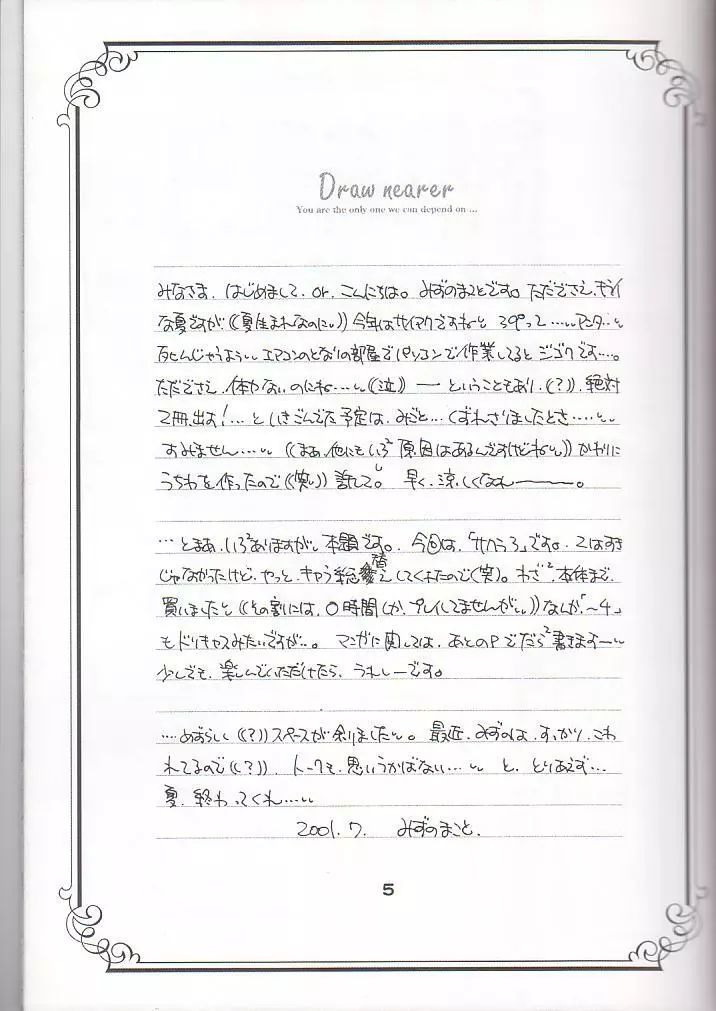 Draw nearer
You are the only one we can depend on ...
みなさま、はじめまして、or、こんにちは。みずのまことです。ただでさえ、キライ
な夏ですが((夏生まれなのに。))今年はサイアクですねと 39°って……アンタ…
死んじゃうよう… エアコンのとなりの部屋でパソコンで作業してると ジゴクです…。
ただでさえ、体力ないのにね…((泣)) ― ということもあり、(?)、絶対
2冊、出す!…と いきごんでた予定は、みごと…くずれさりましたとさ……
すみません…… ((まあ、他にもいろ²原因はあるんですけどね))かわりに
うちわを作ったので((笑))許して。早く、涼しくなれ―――。
…とまあ、いろ²ありますが、本題です。、今回は、「サクラ3」です。2はすき
じゃなかったけど、やっと、キャラ総替えしてくれたので(笑)。わざ²、本体まで、
買いましたと((その割には、0時間しか、プレイしてませんが))なんか「~4」
もドリキャスみたいですが…。マンガに関しては、あとのPでだら²書きます―
少しでも、楽しんでいただけたら、うれしーです。
…めずらしく((?))スペースが余りました。最近、みずのは、すっかり、こわ
れてるので((?))、トークも、思いうかばない…… と、とりあえず…
夏、終わってくれ……
2001.7. みずのまこと.
5